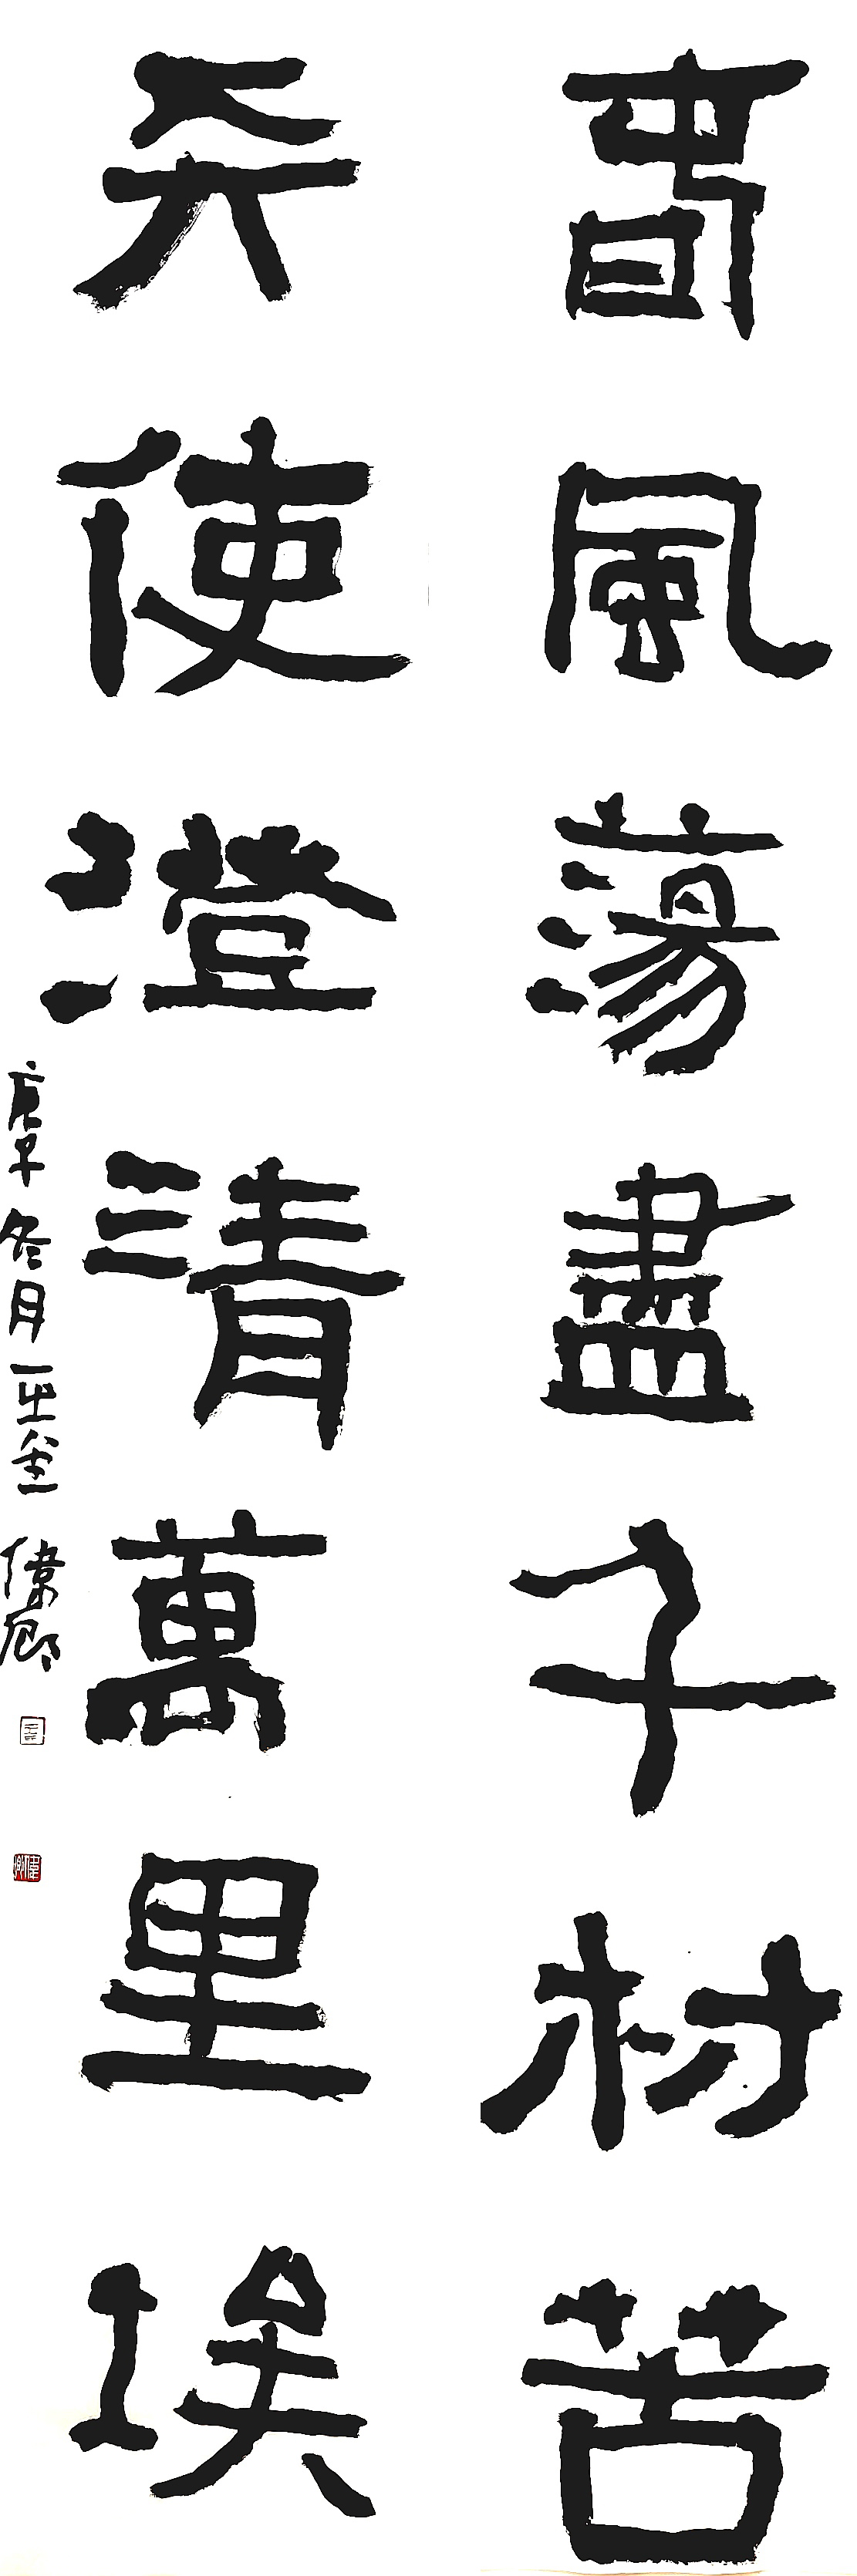 春風蕩盡千村苦
天使澄清萬里埃
庚子冬月一偉